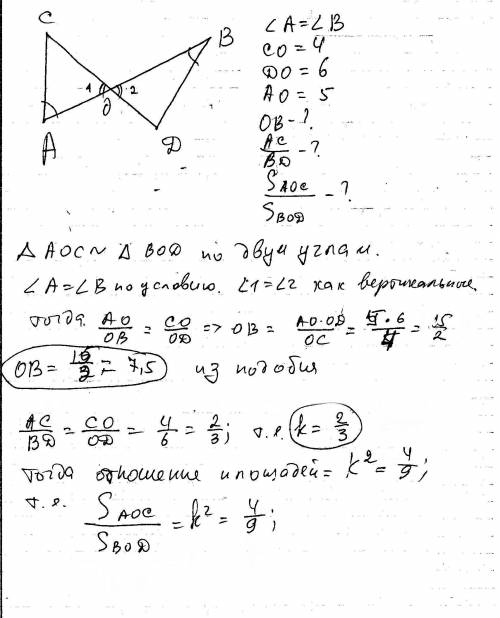 C
B
1
2
O
A
D
∠A=∠B
CO=4
DO=6
AO=5
OB-?
AC/BD-?
S AOC/S BOD-?
△AOC~△BOD по двум углам.
∠A=∠B по условию. ∠1=∠2 как вертикальные.
тогда AO/OB=CO/OD=>OB=AO·OD/OC=5·6/4=15/2
OB=15/2=7,5 из подобия
AC/BD=CO/OD=4/6=2/3; т.е. k=2/3
Тогда отношение площадей=k²=4/9;
т.е.
S AOC/S BOD=k²=4/9;